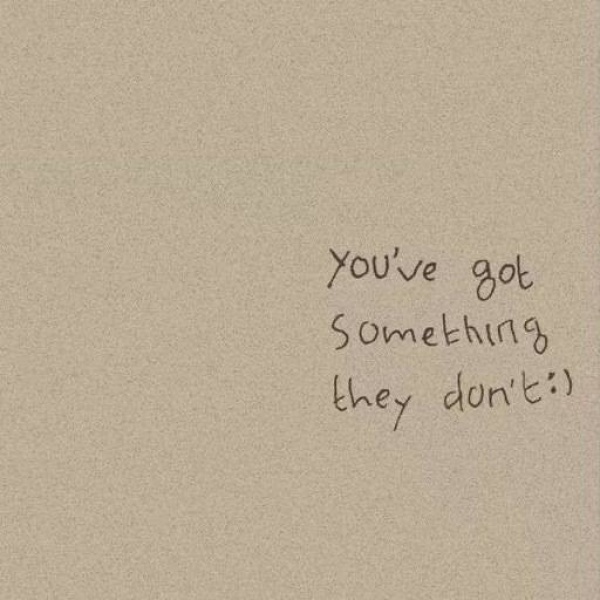 you've got
something
they don't:)